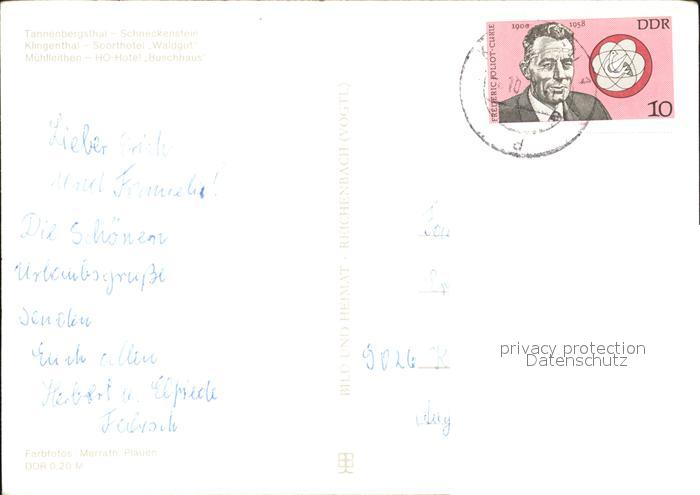 Tannenbergsthal – Schneckenstein
Klingenthal – Sporthotel „Waldgut"
Mühlleithen – HO-Hotel „Buschhaus"
Lieber Erich
und Familie!
Die Schönen
Urlaubsgrüße
senden
Euch allen
Herbert u. Elfriede
Farbfotos: Morrath, Plauen
DDR 0,20 M
BILD UND HEIMAT · REICHENBACH (VOGTL)
FRÉDÉRIC JOLIOT-CURIE
1900 1958
DDR
10
10
d
9026 K
privacy protection
Datenschutz